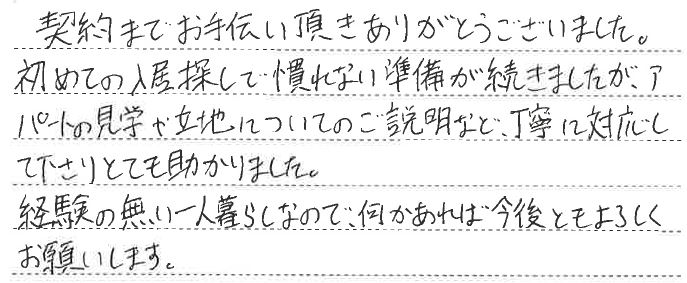 契約までお手伝い頂きありがとうございました。
初めての入居探しで慣れない準備が続きましたが、ア
パートの見学や立地についてのご説明など、丁寧に対応し
て下さりとても助かりました。
経験の無い一人暮らしなので、何かあれば今後ともよろしく
お願いします。